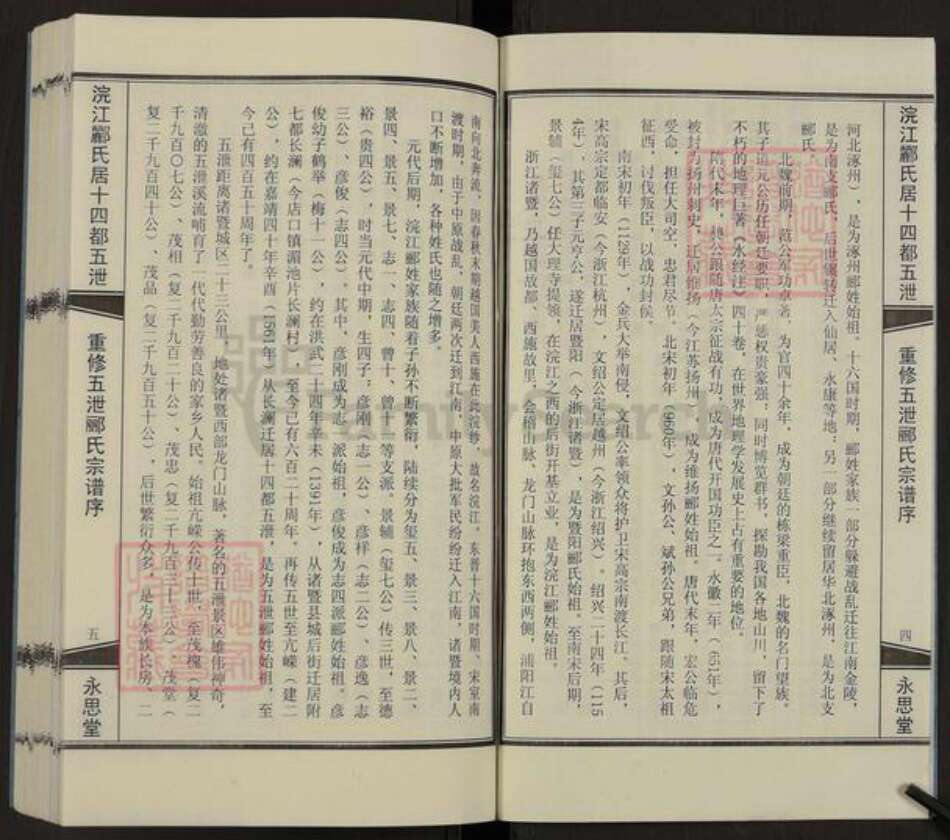 浣江郦氏居十四都五泄
重修五泄郦氏宗谱序
四
永思堂
河北涿州），是为涿州郦姓始祖。十六国时期，郦姓家族一部分躲避战乱迁往江南金陵，
是为南支郦氏，后世辗转迁入仙居、永康等地；另一部分继续留居华北涿州，是为北支
郦氏。
北魏前期，范公军功卓著，为官四十余年，成为朝廷的栋梁重臣，北魏的名门望族。
其子道元公历任朝廷要职，严惩权贵豪强；同时博览群书，探勘我国各地山川，留下了
不朽的地理巨著《水经注》四十卷，在世界地理学发展史上占有重要的地位。
隋代末年，公跟随唐太宗征战有功，成为唐代开国功臣之一。永徽二年（651年），
被封为扬州刺史，迁居维扬（今江苏扬州），成为维扬郦姓始祖。唐代末年，宏公临危
受命，担任大司空，忠君尽节。北宋初年（960年），文孙公、斌孙公兄弟，跟随宋太祖
征西，讨伐叛臣，以战功封侯。
南宋初年（1129年），金兵大举南侵，文绍公率领众将护卫宋高宗南渡长江。其后，
宋高宗定都临安（今浙江杭州），文绍公定居越州（今浙江绍兴）。绍兴二十四年（115
4年），其第三子元亨公，遂迁居暨阳（今浙江诸暨），是为暨阳郦氏始祖。至南宋后期，
景辅（玺七公）任大理寺提领，在浣江之西的后街开基立业，是为浣江郦姓始祖。
浙江诸暨，乃越国故都、西施故里，会稽山脉、龙门山脉环抱东西两侧，浦阳江自
南向北奔流，因春秋末期越国美人西施在此浣纱，故名浣江。东晋十六国时期、宋室南
渡时期，由于中原战乱，朝廷两次迁到江南，中原大批军民纷纷迁入江南，诸暨境内人
口不断增加，各种姓氏也随之增多。
元代后期，浣江郦姓家族随着子孙不断繁衍，陆续分为玺五、景三、景八、景二、
景四、景五、景七、志一、志四、曾十、曾十一等支派。景辅（玺七公）传三世，至德
裕（贵四公），时当元代中期，生四子：彦刚（志一公）、彦样（志二公）、彦逸（志
三公）、彦俊（志四公）。其中，彦刚成为志一派始祖，彦俊成为志四派郦姓始祖。彦
俊幼子鹤举（梅十一公），约在洪武二十四年辛未（1391年），从诸暨县城后街迁居附
七都长澜（今店口镇湄池片长澜村），至今己有六百二十周年。再传五世至亢嵘（建二
公），约在嘉靖四十年辛酉（1561年），从长澜迁居十四都五泄，是为五泄郦姓始祖，至
今己有四百五十周年了。
五泄距离诸暨城区二十三公里，地处诸暨西部龙门山脉，著名的五泄景区雄伟神奇，
清澈的五泄溪流哺育了一代代勤劳善良的家乡人民。始祖亢嵘公传十世，至茂槐（复二
千九百〇七公）、茂相（复二千九百二十公）、茂忠（复二千九百三十三公）、茂堂（
复二千九百四十公）、茂品（复二千九百五十公），后世繁衍众多，是为本族长房、二
浣江郦氏居十四都五泄
重修五泄郦氏宗谱序
五
永思堂